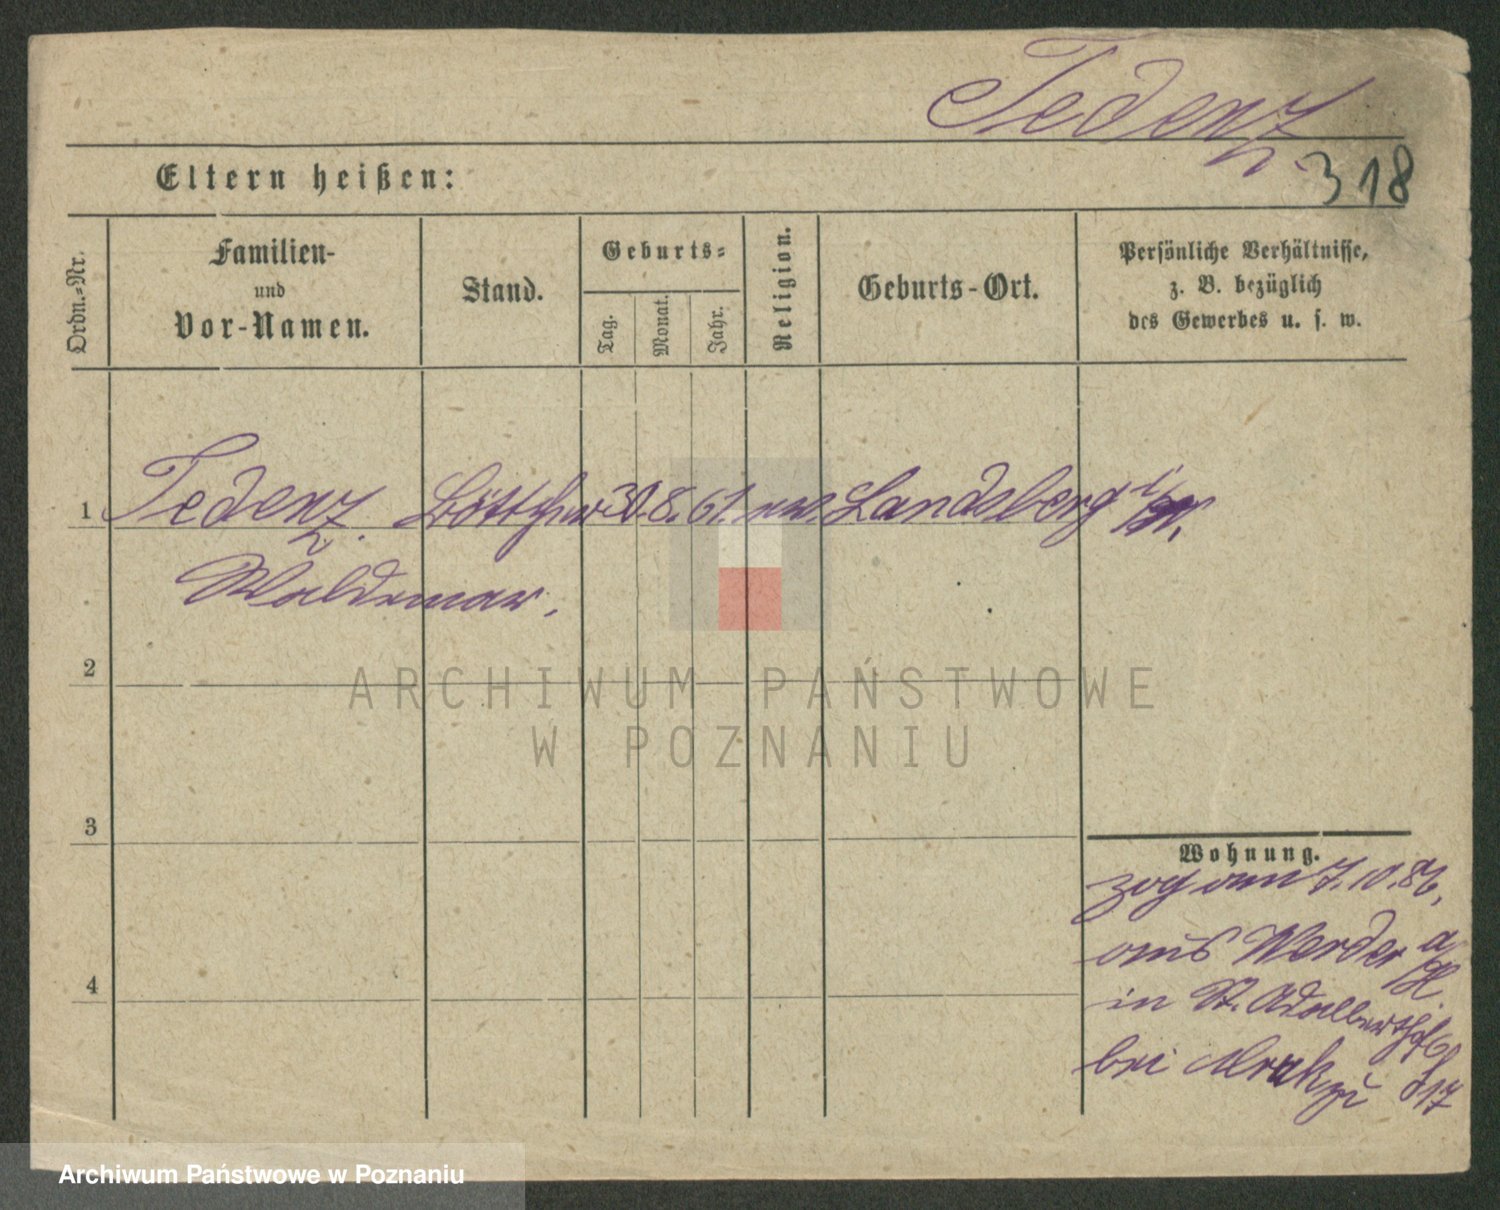 Tedenz
318
Eltern heißen:
Ordn.-Nr.
Familien- und Vor-Namen.
Stand.
Geburts-
Tag.
Monat.
Jahr.
Religion.
Geburts-Ort.
Persönliche Verhältnisse,
z. B. bezüglich
des Gewerbes u. s. w.
1 Tedenz. Böttcher 30.8.61. Landsberg
Waldemar.
2
3
4
Wohnung.
zog am 7.10.86,
aus Werder a/H.
in St. Adalberthof
bei zu 17
ARCHIWUM PAŃSTWOWE
W POZNANIU
Archiwum Państwowe w Poznaniu